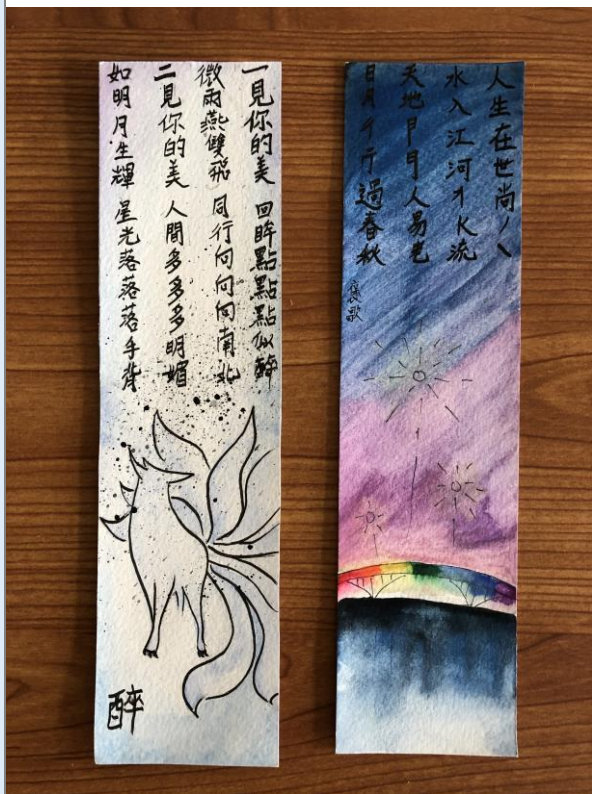 一見你的美 回眸點點點似醉
微雨燕雙飛 同行向向向南北
二見你的美 人間多多多明媚
如明月生輝 星光落落落手背
醉
人生在世尚丿乀
水入江河流
天地人易老
日月彳亍過春秋